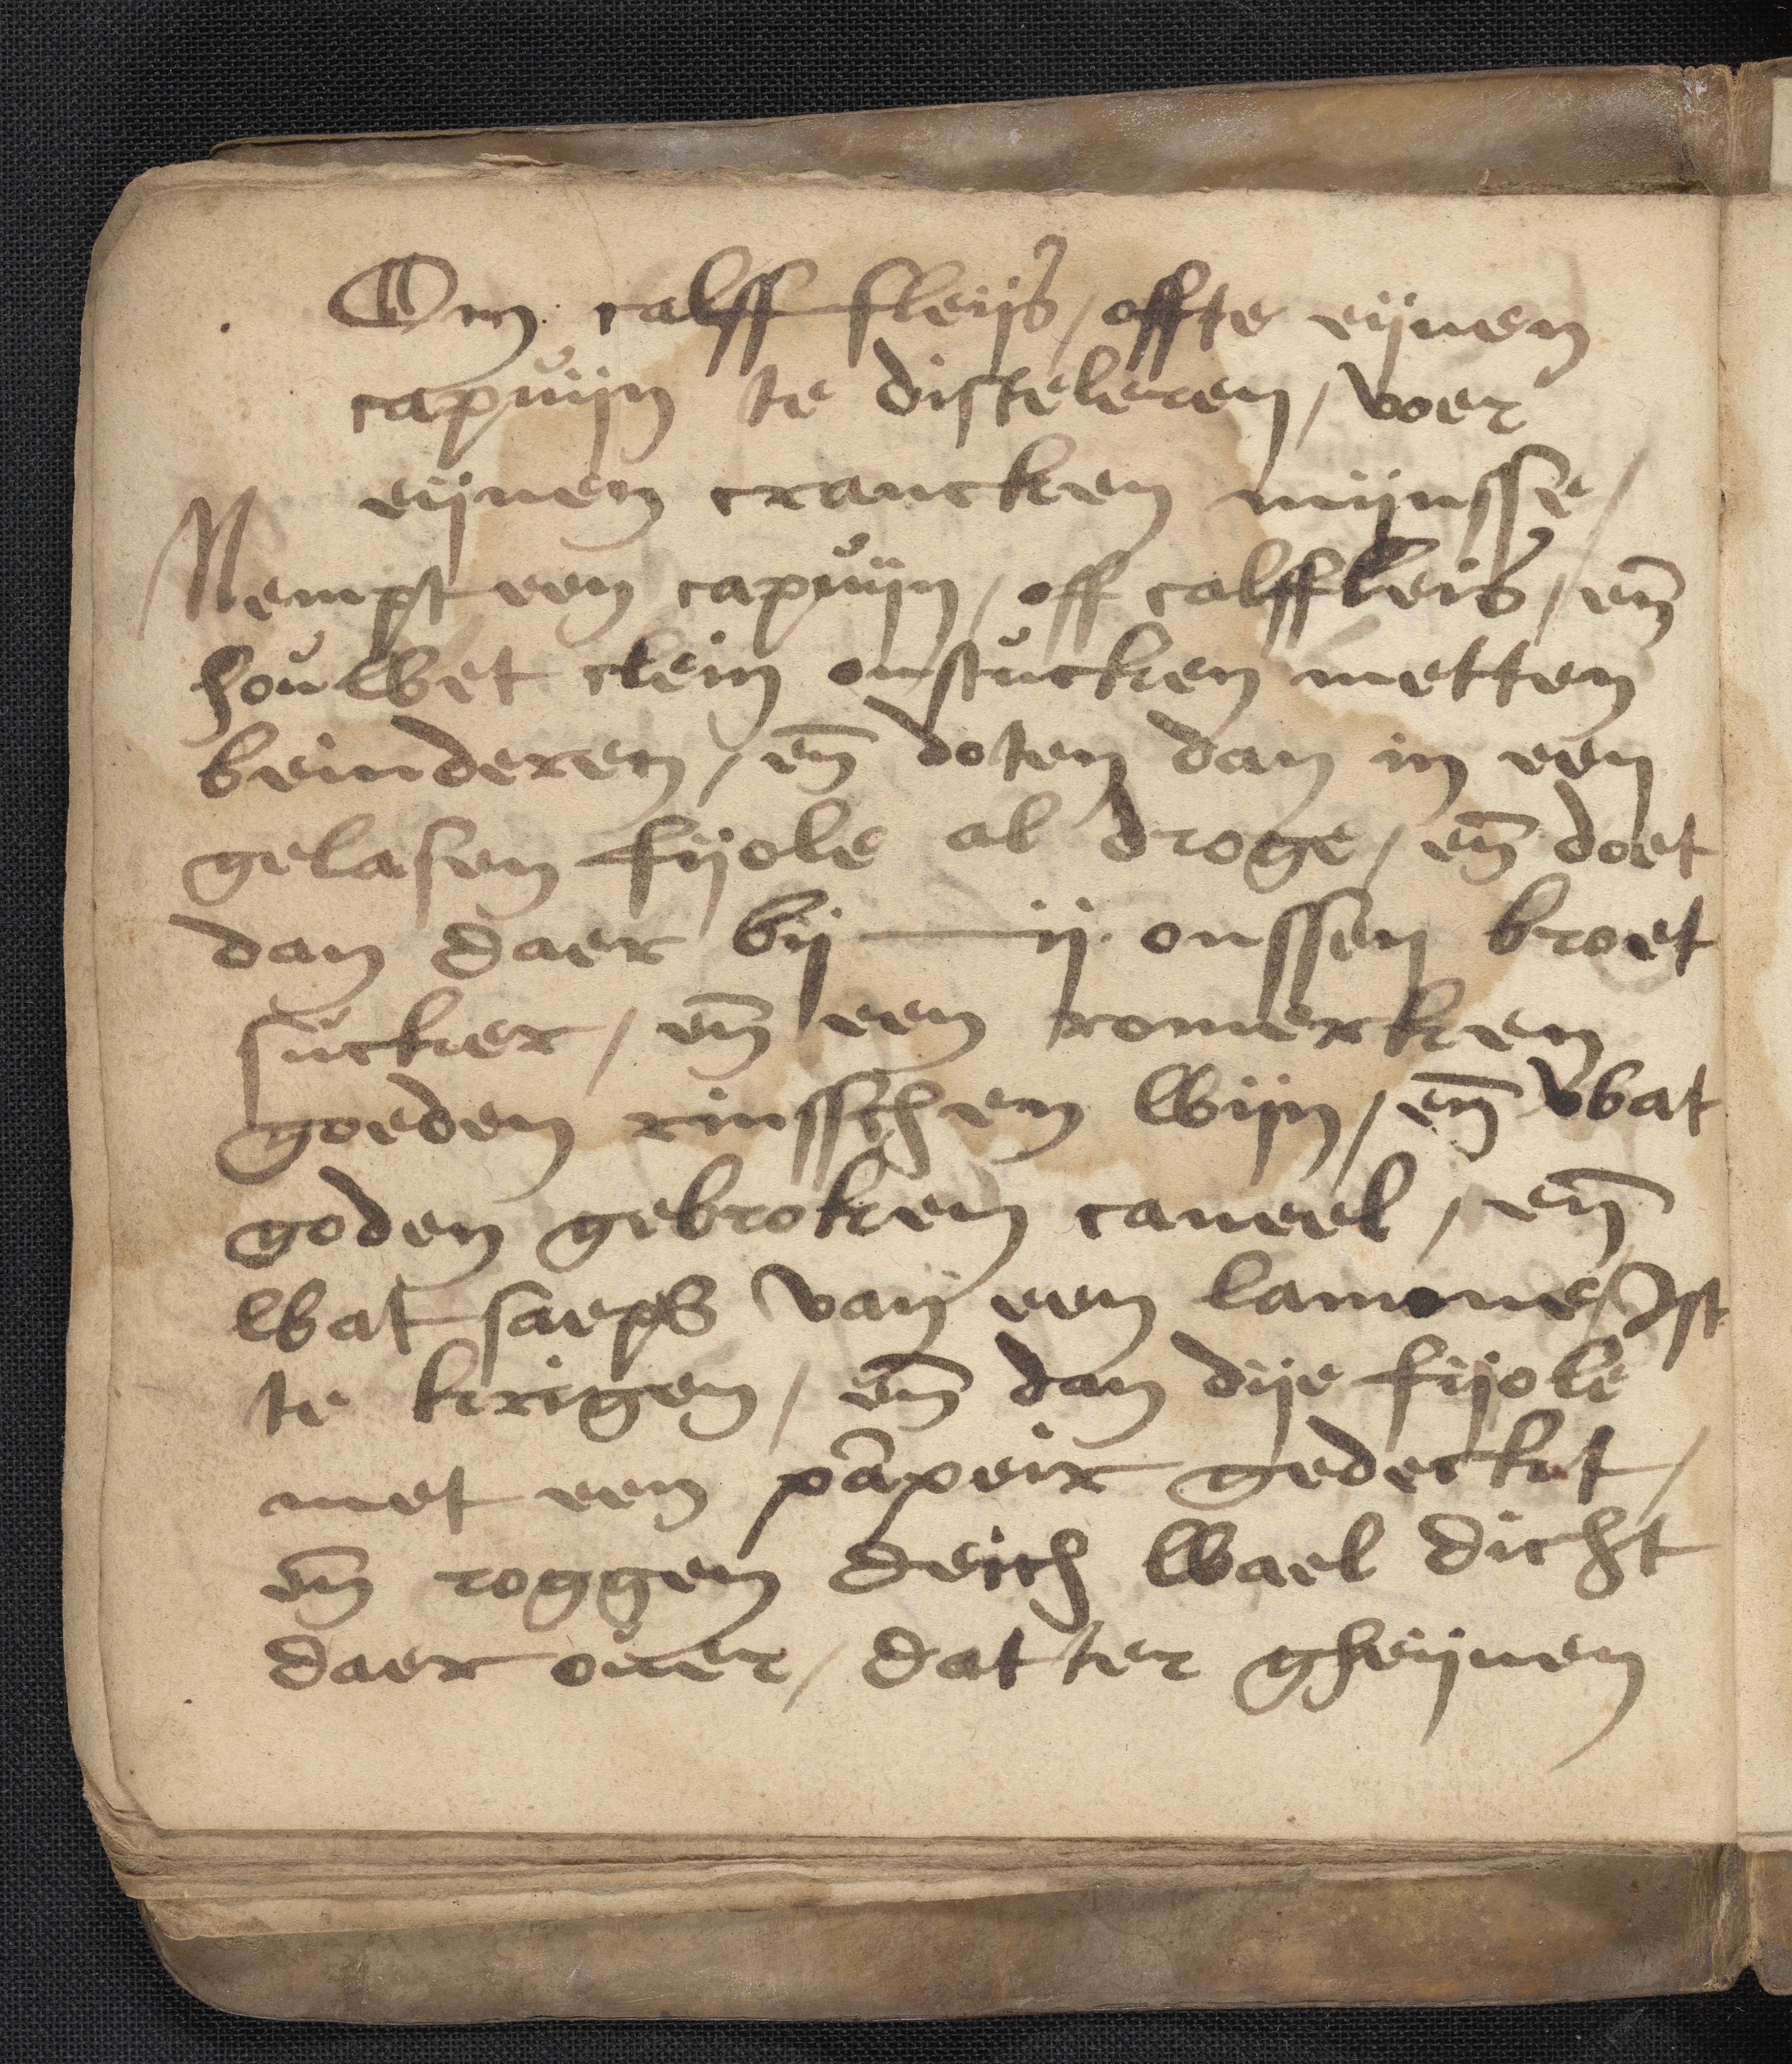 Om calff fleijs / offte eijnen
capuijn te disteleren / voer
eijnen crancken mijnsse /
Nempt een capuijn / off calffleis / en̄
houwet clein onstucken metten
beinderen / en̄ doten dan in een
gelasen fijole al droge / en̄ doet
dan daer bij — ij onssen broet
sucker / en̄ een romerken
goeden rinsschen wijn / en̄ wat
goden gebroken caneel / en̄
wat saeps van een lamone / Ist
te krigen / en̄ dan dije fijole
met een papeir gedeckt /
en̄ roggen deich wael dicht
daer ouer / datter gheijnen